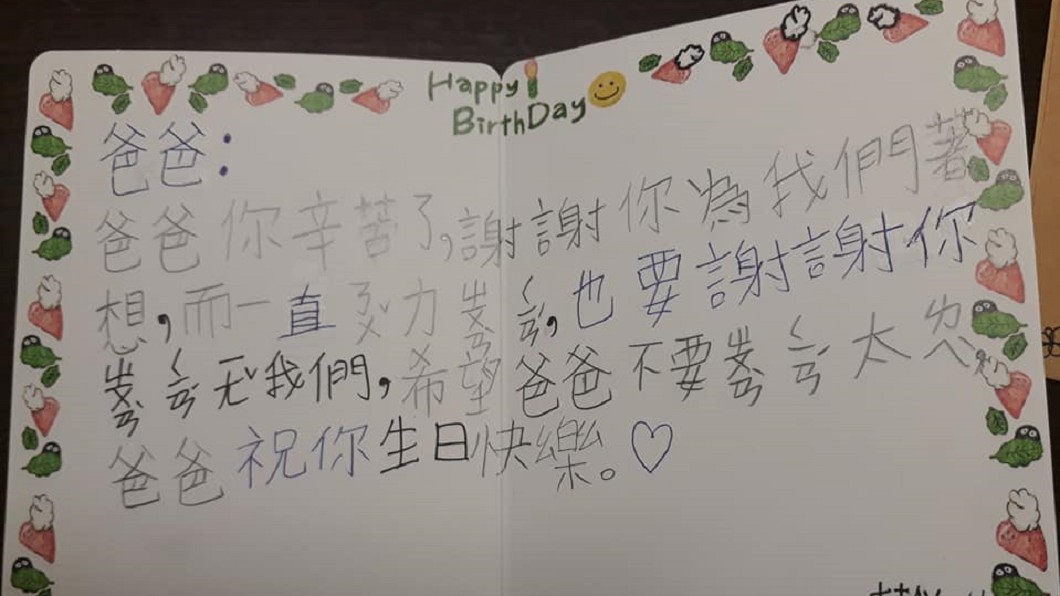 Happy
BirthDay
爸爸:
爸爸你辛苦了,謝謝你為我們著
想,而一直ㄋㄨˇ力ㄓㄨㄢˋㄑㄢˊ,也要謝謝你
ㄓㄨㄢˋㄑㄢˊ我們,希望爸爸不要ㄓㄨㄢˋㄑㄢˊ太
爸爸祝你生日快樂。♡